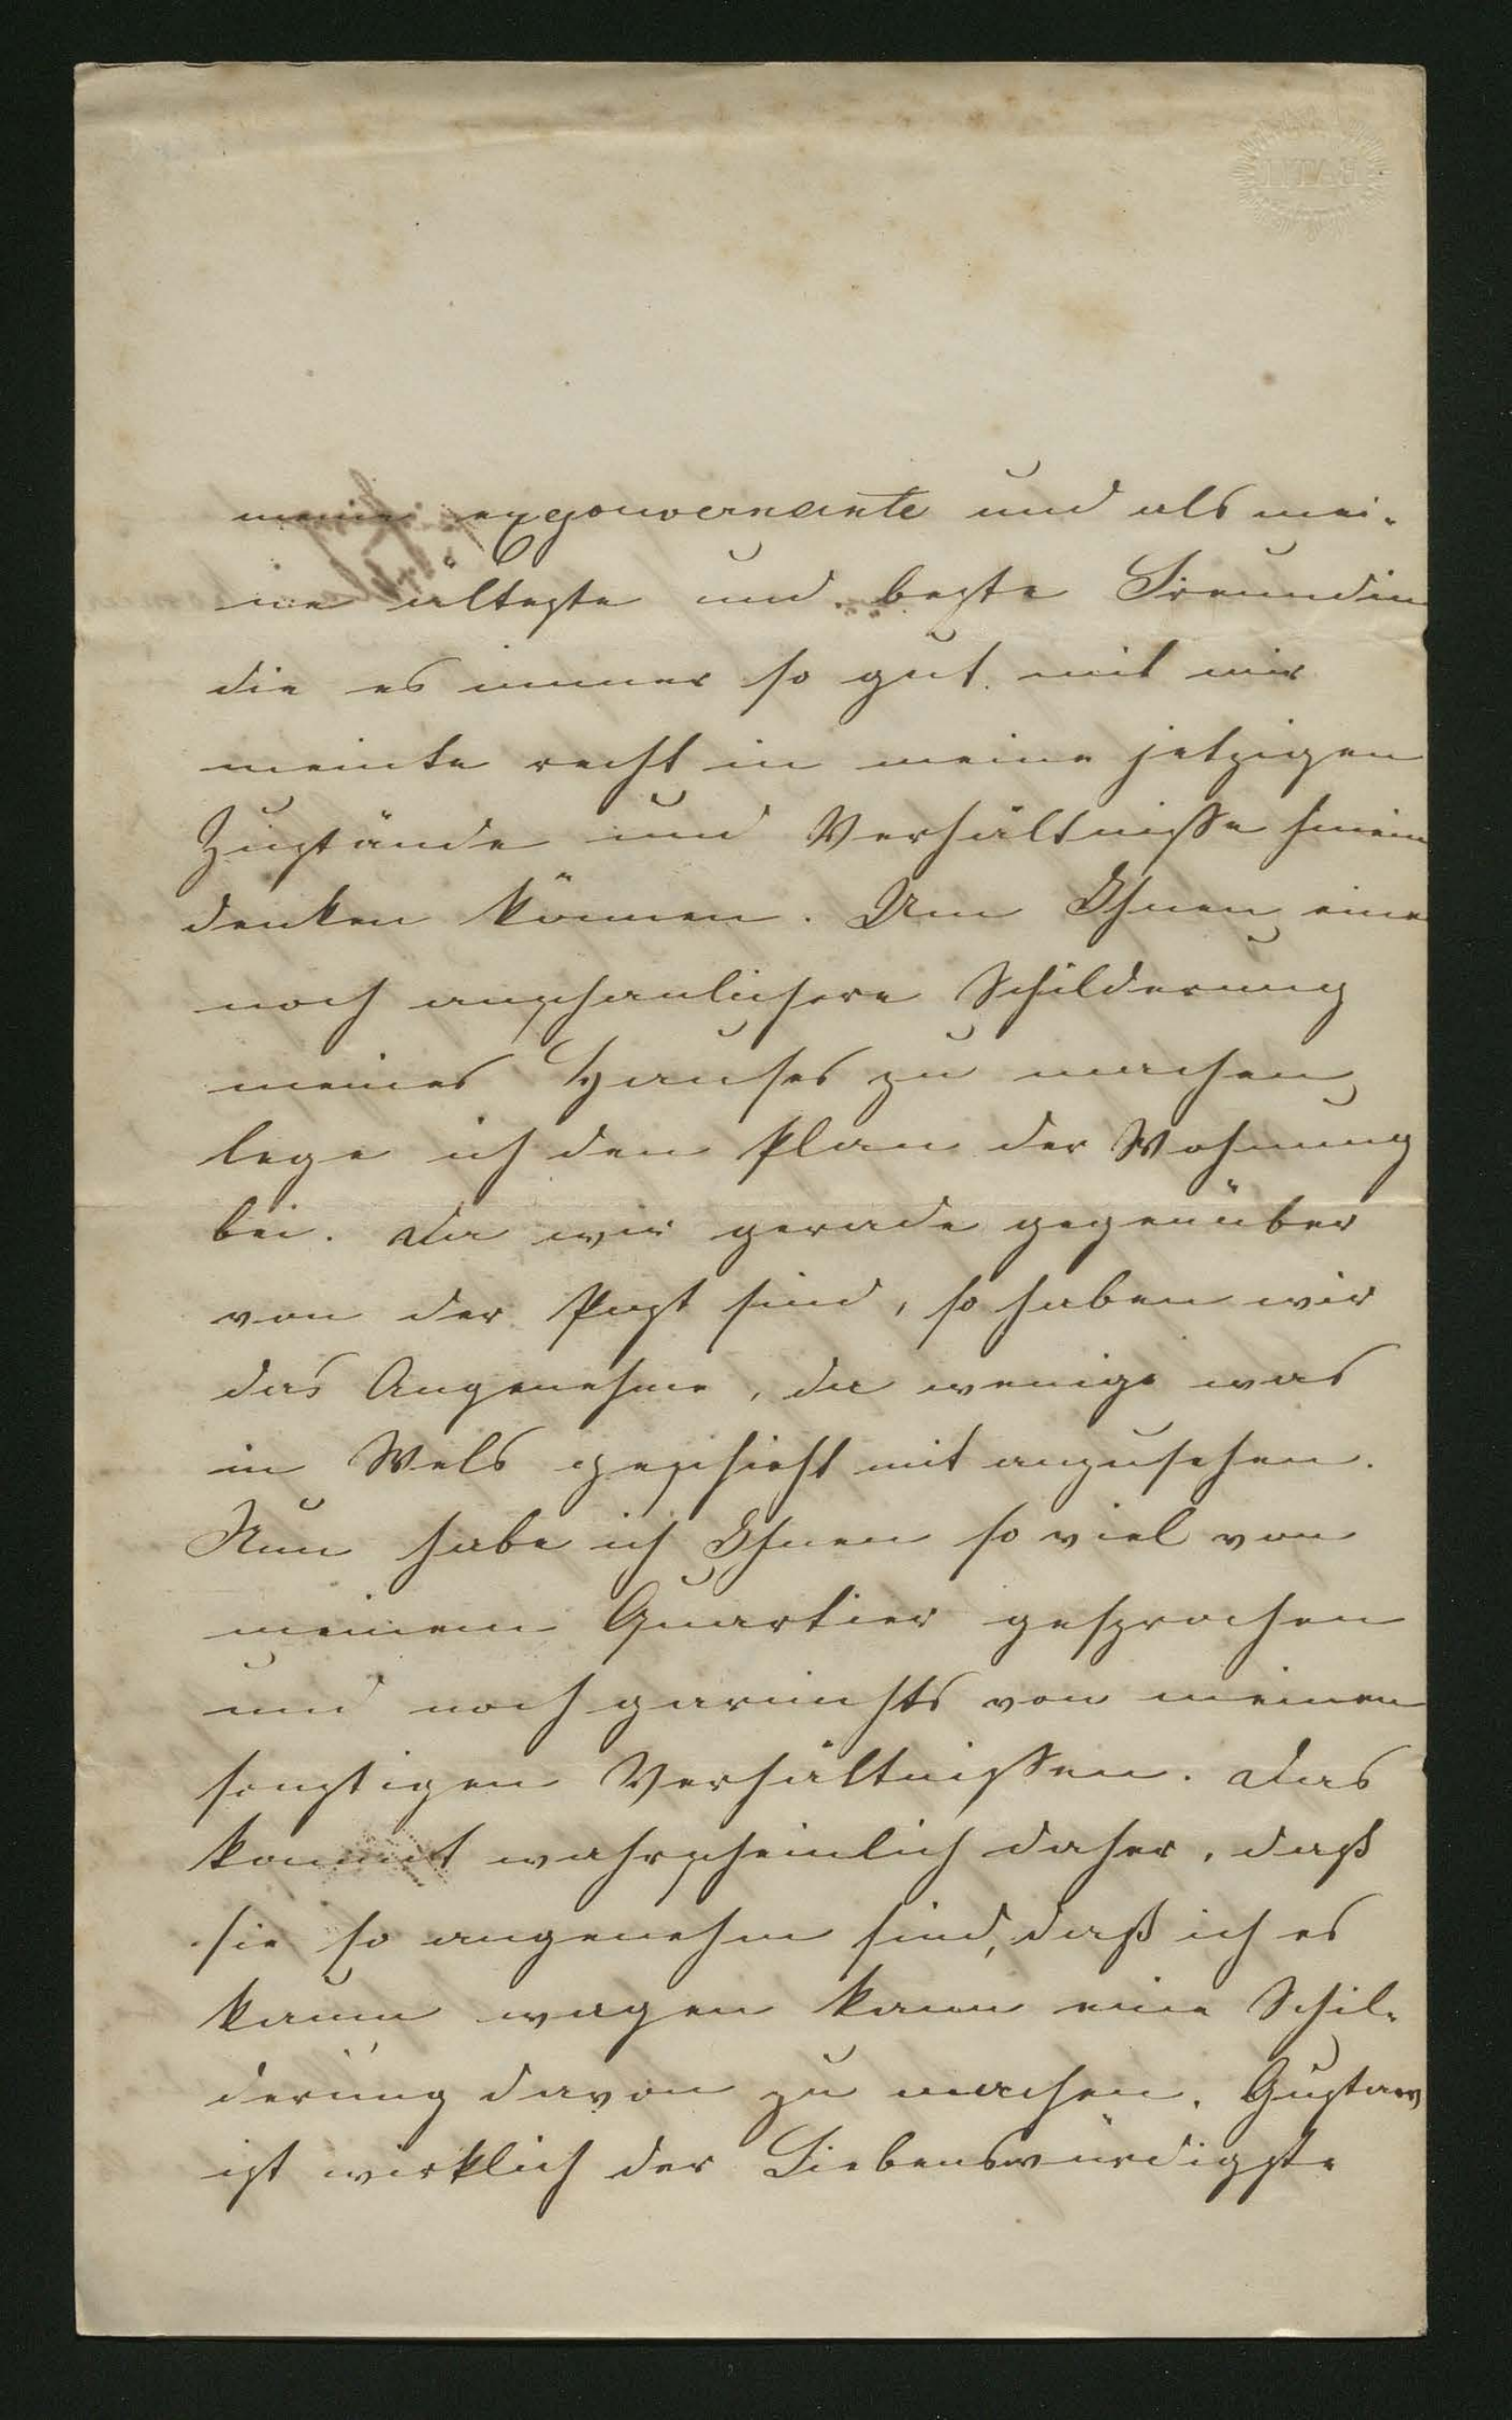 meine exgouvernante und als mei-
ne älteste und beste Freundin
die es immer so gut mit mir
meinte recht in meine jetzigen
Zustände und Verhältnisse hinein
denken können. Um Ihnen eine
noch anschaulichere Schilderung
meines Hauses zu machen,
lege ich den Plan der Wohnung
bei. Da wir gerade gegenüber
von der Post sind, so haben wir
das Angenehme, da wenige was
in Wels geschieht mit anzusehen.
Nun habe ich Ihnen so viel von
meinem Quartier gesprochen
und noch garnichts von meinen
sonstigen Verhältnissen. Das
kommt wahrscheinlich daher, daß
sie so angenehm sind, daß ich es
kaum wagen kann eine Schil-
derung davon zu machen. Gustav
ist wirklich der Liebenswürdigste